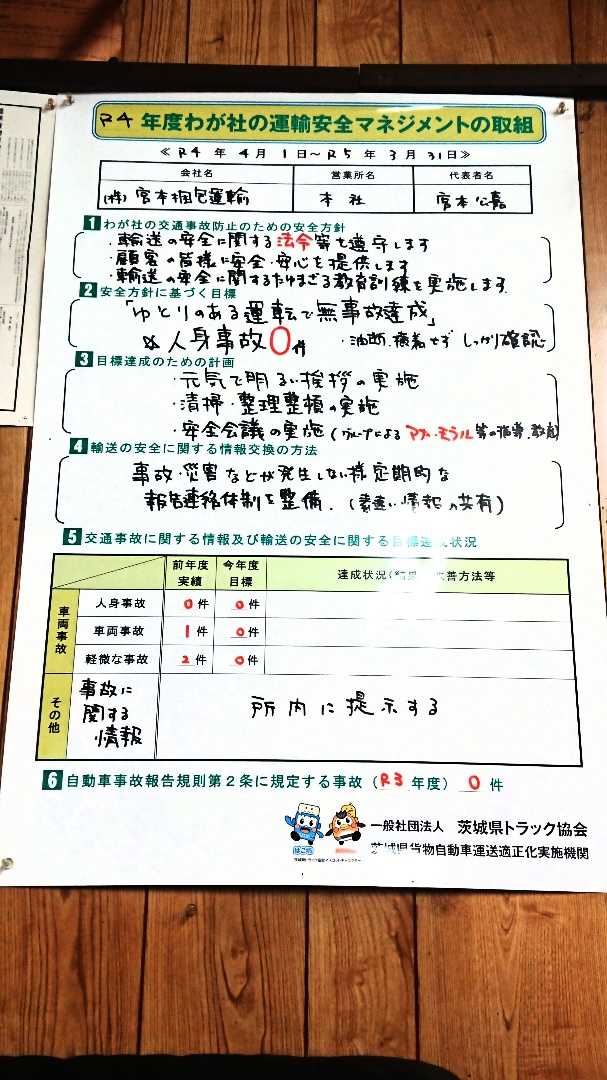 R4 年度わが社の運輸安全マネジメントの取組
≪ R4 年 4 月 1 日～R5 年 3 月 31 日 ≫
会社名 営業所名 代表者名
(株) 宮本梱包運輸 本社 宮本公嘉
1 わが社の交通事故防止のための安全方針
・輸送の安全に関する法令等を遵守します
・顧客の皆様に安全・安心を提供します
・輸送の安全に関するたゆまざる教育訓練を実施します
2 安全方針に基づく目標
「ゆとりのある運転で無事故達成」
※人身事故0件 ・油断、横着せず しっかり確認
3 目標達成のための計画
・元気で明るい挨拶の実施
・清掃・整理整頓の実施
・安全会議の実施(グループによる マナー・モラル等の指導、教育)
4 輸送の安全に関する情報交換の方法
事故・災害などが発生しない様定期的な
報告連絡体制を整備。(素速い情報の共有)
5 交通事故に関する情報及び輸送の安全に関する目標達成状況
前年度実績 今年度目標 達成状況(結果 改善方法等
車両事故
人身事故 0件 0件
車両事故 1件 0件
軽微な事故 2件 0件
その他 事故に関する情報 所内に提示する
6 自動車事故報告規則第2条に規定する事故(R3 年度) 0 件
一般社団法人 茨城県トラック協会
茨城県貨物自動車運送適正化実施機関